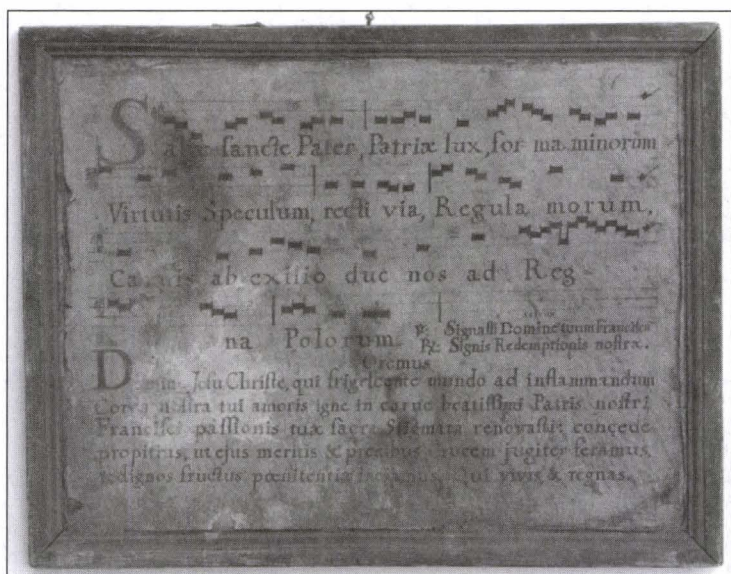 Salve sancte Pater, Patriæ lux, for ma minorum
Virtutis Speculum, recti via, Regula morum,
Carnis ab exilio duc nos ad Reg
na Polorum
℣. Signasti Domine Francisci
℟. Signis Redemptionis nostræ.
Oremus
Domin Jesu Christe, qui frigescente mundo ad inflammandum
Corda nostra tui amoris igne in carne beatissimi Patris nostri
Francisci passionis tuæ sacra Stigmata renovasti: concede
propitius, ut ejus meritis & precibus crucem jugiter feramus
dignos fructus pœnitentiæ Qui vivis & regnas.